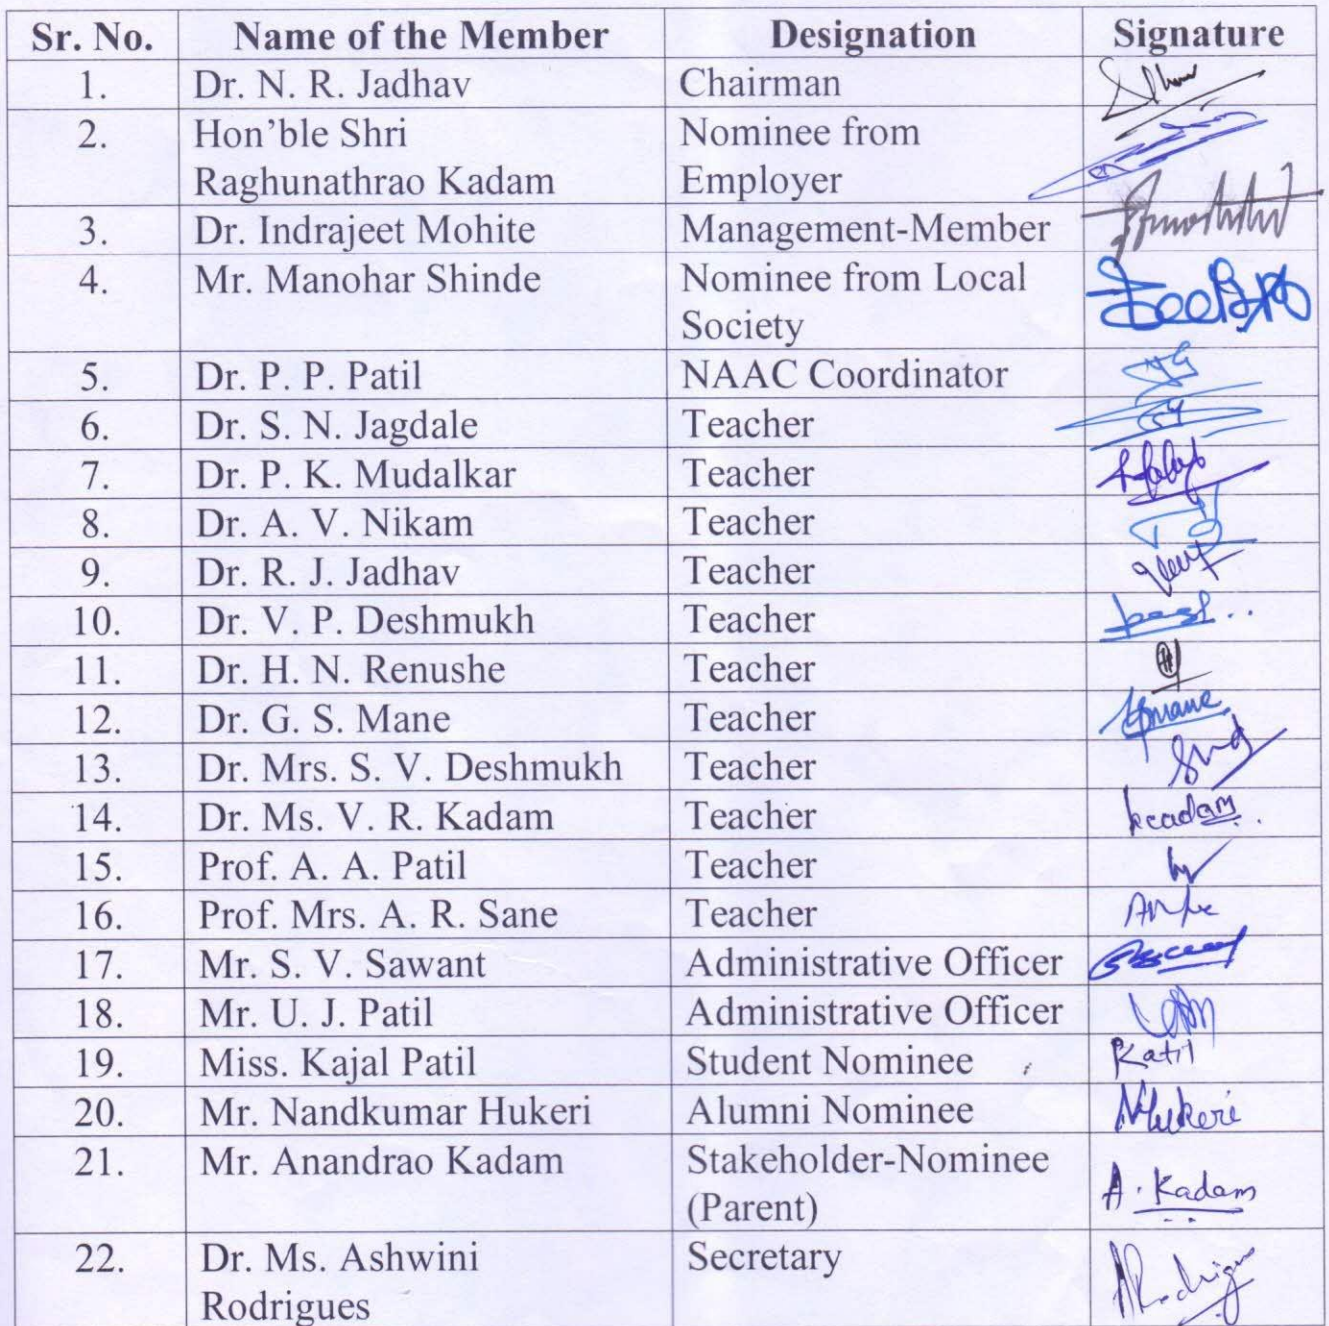 Sr. No. Name of the Member Designation Signature
1. Dr. N. R. Jadhav Chairman
2. Hon'ble Shri Nominee from
Raghunathrao Kadam Employer
3. Dr. Indrajeet Mohite Management-Member
4. Mr. Manohar Shinde Nominee from Local
Society
5. Dr. P. P. Patil NAAC Coordinator
6. Dr. S. N. Jagdale Teacher
7. Dr. P. K. Mudalkar Teacher
8. Dr. A. V. Nikam Teacher
9. Dr. R. J. Jadhav Teacher
10. Dr. V. P. Deshmukh Teacher
11. Dr. H. N. Renushe Teacher
12. Dr. G. S. Mane Teacher
13. Dr. Mrs. S. V. Deshmukh Teacher
14. Dr. Ms. V. R. Kadam Teacher
15. Prof. A. A. Patil Teacher
16. Prof. Mrs. A. R. Sane Teacher
17. Mr. S. V. Sawant Administrative Officer
18. Mr. U. J. Patil Administrative Officer
19. Miss. Kajal Patil Student Nominee
20. Mr. Nandkumar Hukeri Alumni Nominee NHukeri
21. Mr. Anandrao Kadam Stakeholder-Nominee
(Parent) A. Kadam
22. Dr. Ms. Ashwini Secretary ARodrigues
Rodrigues